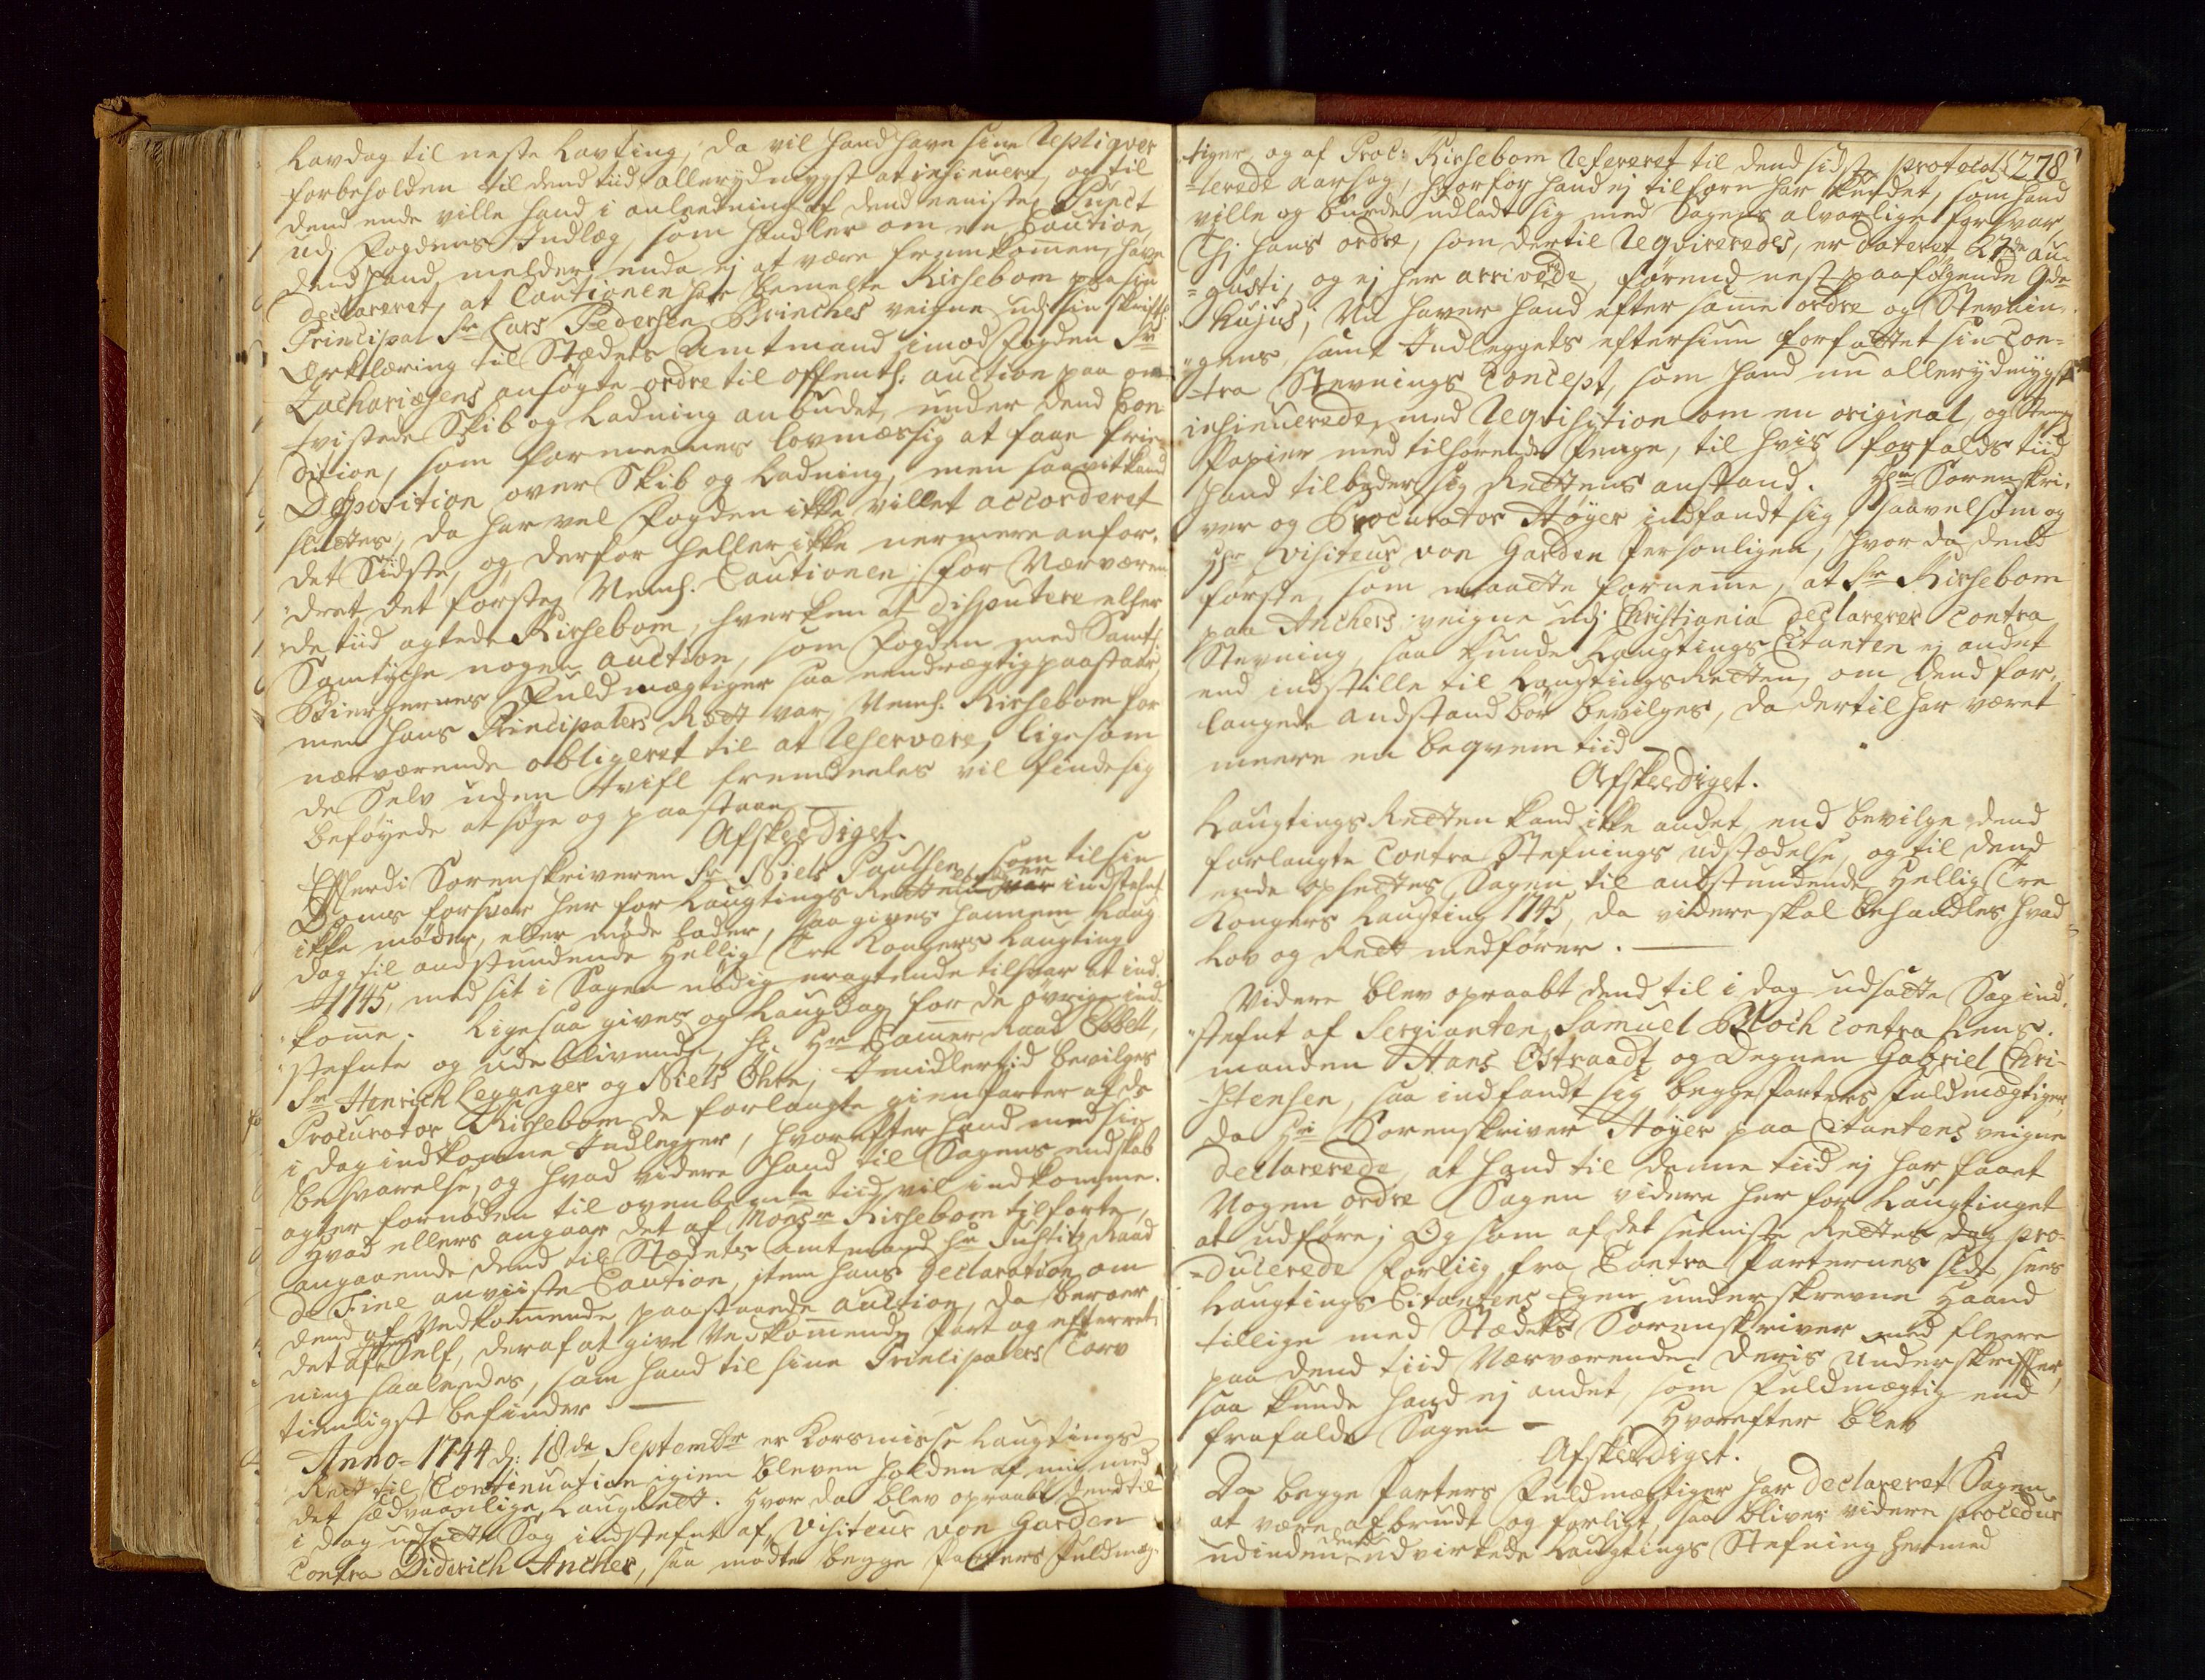 Lavdag til neste Lavting, da vil hand have sine Repliqver
forbeholden til dend tiid allerydmygst at insinuere, og til
dend ende ville hand i anledning af dend eeniste Punct
udj Fogdens Indlæg, som handler om en Caution,
dend hand melder enda ej at være fremkommen, have
declareret, at Cautionen har bemelte Kirsebom paa sin
Principal Sr Lars Pedersen Brinches veigne udj sin skriftl.
Erklæring til Stædets Amtmand imod Fogden Sr
Zachariæsens ansøgte ordre til offentl: auction paa om-
tvistede Skib og Ladning anbudet, under dend Con-
dition, som formeenes lovmæssig at faae frie
Disposition over Skib og Ladning, men saavit kand
sluttes, da har vel Fogden ikke villet accorderet
det Sidste, og derfor heller ikke nermere anfor-
dret det første, Neml. Cautionen; for Nærværen-
de tiid agtede Kirsebom, hverken at disputere eller
Samtyche nogen auction, som Fogden med Samtl:
Biergernes Fuldmægtiger saa eendrægtig paastaar,
men hans Principalers Rætt var Neml. Kirsebom for
nærværende obligeret til at Reservere, ligesom
de Selv uden tvifl fremdeeles vil finde sig
beføyede at søge og paastaae —
Afskeediget.
Efterdi Sorenskriveren Sr Niels Paulsen, som til sin
Doms forsvar her for Laugtings Retten er indstefnt
ikke møder, eller møde lader, saa gives hannem Laug
dag til anstundende Hellig Tre Kongers Laugting
1745, med sit i Sagen nødig eragtende tilsvar at ind-
komme. Ligesaa gives og Laugdag for de øvrige ind-
stefnte og udeblivende, Sc: Hr Cammer Raad Ebbell,
Sr Henrich Leganger og Niels Øhre; Imidlertid bevilges
Procurator Kirsebom de forlangte gienparter af de
i dag indkomne Indlegger, hvorefter hand med sin
besvarelse, og hvad videre hand til Sagens endskab
agter fornøden til ovenbemte tiid vil indkomme.
Hvad ellers angaar det af Monsr Kirsebom tilførte,
angaaende dend til Stædets Amtmand Hr Justitz Raad
de Fine anviiste Caution, item hans Declaration om
dend af Vedkommende paastaaede auction, da beroer
det af Self, deraf at give Vedkommende Part og efterret-
ning saaledes, som hand til sine Principalers Tarv
tienligst befinder. —
Anno = 1744 d: 18de Septembr er Korsmisse Laugtings
Rett til Continuation igien bleven holden af mig med
det sædvaanlige Laugrett. Hvor da blev opraabt dend til
i dag udsatte Sag indstefnt af Visiteur von Garden
Contra Diderich Ancher, saa mødte begge Parters Fuldmæg-
278
tiger og af Proc: Kirsebom Refereret til dend sidste protocol-
lerede aarsag, hvorfor hand ej tilforn har kundet, som hand
ville og burde udladt sig med Sagens alvorlige forsvar,
Thj hans ordre, som dertil Reqvireredes, er dateret 27de au-
gusti, og ej her arriverede, førend nest paafølgende 9de
hujus; Nu haver hand efter samme ordre og Stevnin-
gens, samt Indleggets eftersiun forfattet sin Con-
tra Stevnings Concept, som hand nu allerydmygst
insinuerede, med Reqvisition om en original, og Stempl.
Papier med tilhørende Penge, til hvis forfalds tiid
hand tilbyder sig Rettens anstand. Hr Sorenskri-
ver og Procurator Høyer indfandt sig, saavelsom og
Hr Visiteur von Garden Personligen, hvor da dend
første, som maatte fornemme, at Sr Kirsebom
paa Anchers veigne udj Christiania declarerer Contra
Stevning, saa kunde Laugtings Citanten ej andet
end indstille til Laugtings Retten, om dend for-
langede andstand bør bevilges, da dertil har været
meere en beqvem tiid —
Afskeediget.
Laugtings Retten kand ikke andet, end bevilge dend
forlangte Contra Stefnings udstædelse, og til dend
ende opsettes Sagen til anstundende Hellig Tre
Kongers Laugting 1745, da videre skal behandles hvad
Lov og Rett medfører. —
Videre blev opraabt dend til i dag udsatte Sag ind-
stefnt af Sergianten Samuel Bloch Contra Lens-
manden Hans Østraadt og Degnen Gabriel Chri-
stensen, saa indfandt sig begge Parters Fuldmægtiger,
da Hr Sorenskriver Høyer paa Citantens veigne
declarerede, at hand til denne tiid ej har faaet
Nogen ordre Sagen videre her for Laugtinget
at udføre; Og som af det seeniste Rettes dag pro-
ducerede Forliig fra Contra Parternes side sees
Laugtings Citantens Egen underskrevne Haand
tillige med Stædets Sorenskriver med fleere
paa dend tiid Nærværende deris Underskrifter,
saa kunde hand ej andet, som Fuldmægtig end
frafalde Sagen — Hvorefter blev
Afskeediget.
Da begge Parters Fuldmægtiger har declareret Sagen
at være afbrudt og forligt, saa bliver videre procedur
udinden dend udvirkede Laugtings Stefning hermed